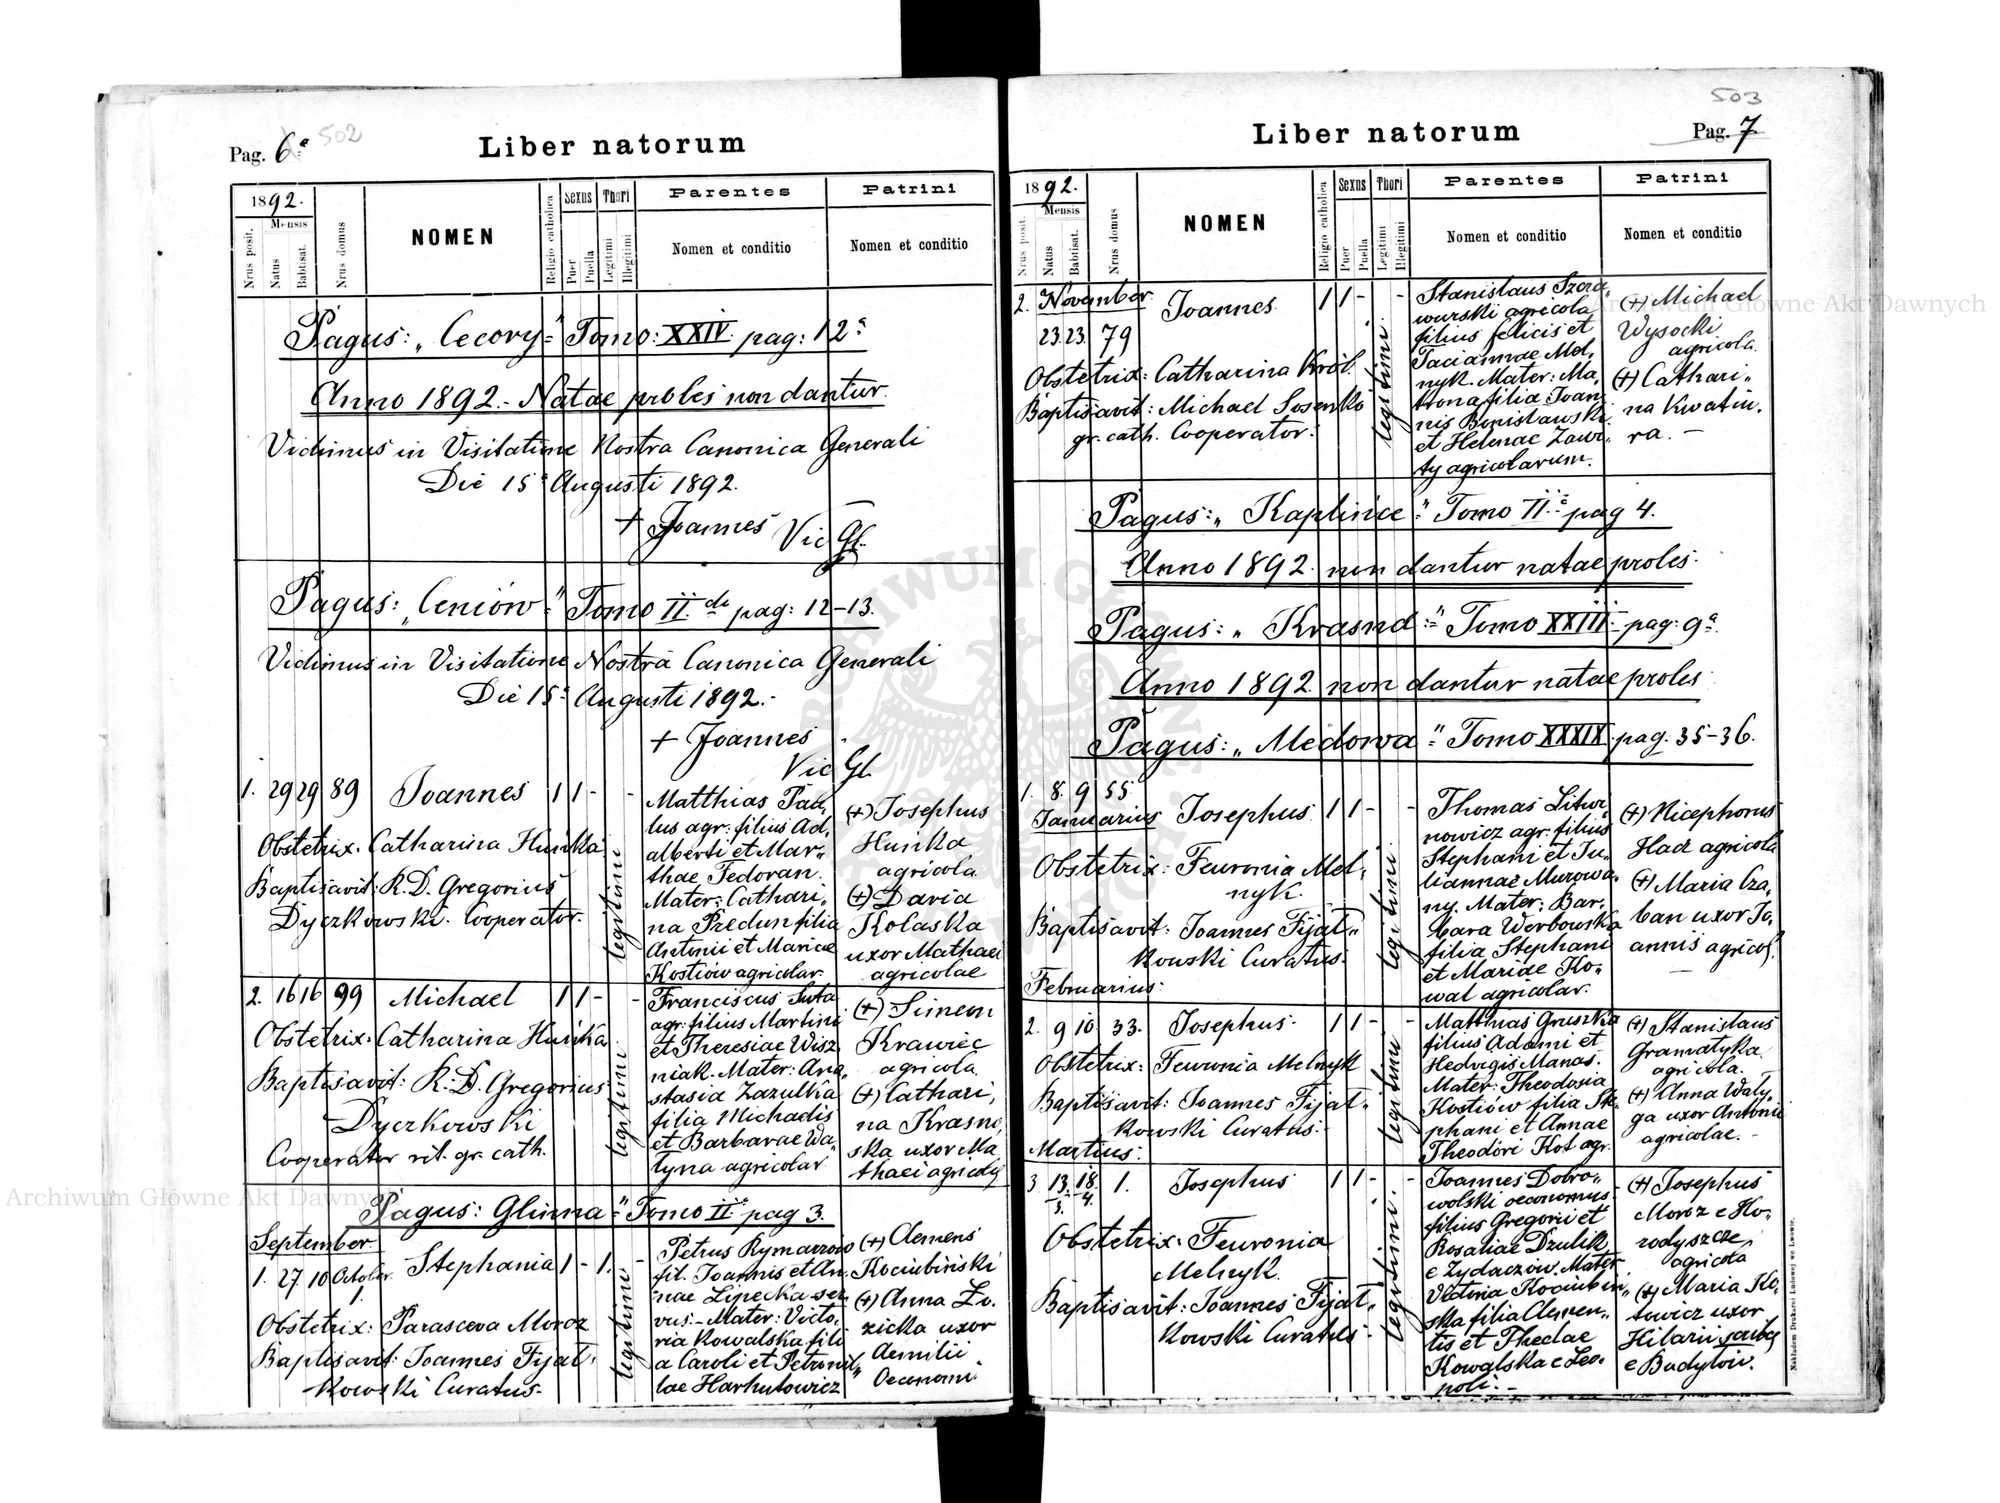 Pag. 6a 502
Liber natorum
1892.
Nrus posit.
Mensis
Natus
Babtisat.
Nrus domus
NOMEN
Religio catholica
Sexus
Puer
Puella
Thori
Legitimi
Illegitimi
Parentes
Nomen et conditio
Patrini
Nomen et conditio
Pagus: „Cecory" Tomo: XXIV. pag: 12a
Anno 1892.- Natae proles non dantur.
Vidimus in Visitatione Nostra Canonica Generali
Die 15a Augusti 1892.
+ Joannes Vic Gl.
Pagus: „Ceniów" Tomo II. do pag: 12-13.
Vidimus in Visitatione Nostra Canonica Generali
Die 15a Augusti 1892.-
+ Joannes
Vic Gl.
1. 29 29 89 Joannes 1 1 - -
Obstetrix: Catharina Huńka
Baptisavit: R. D. Gregorius
Dyczkowski. Cooperator.
legitimi
Matthias Pau„
lus agr: filius Ad„
alberti et Mar„
thae Fedoran.
Mater: Cathari„
na Predun filia
Antonii et Mariae
Kostiów agricolar.
(+) Josephus
Huńka
agricola
(+) Daria
Kolaska
uxor Mathaei
agricolae
2. 16 16 99 Michael 1 1 - -
Obstetrix: Catharina Huńka
Baptisavit: R. D. Gregorius
Dyczkowski
Cooperator rit. gr. cath.
legitimi
Franciscus Suta
agr: filius Martini
et Theresiae Wisz„
niak. Mater: Ana„
stasia Zazulka
filia Michaelis
et Barbarae Wa„
tyna agricolar.
(+) Simeon
Krawiec
agricola.
(+) Cathari„
na Krasno„
ska uxor Ma
thaei agricolae
Pagus: Glinna" Tomo II. pag 3.
September
1. 27 10 October 1. Stephania 1 - 1. -
Obstetrix: Parasceva Moroz
Baptisavit: Joannes Fijał„
kowski Curatus.
legitimi
Petrus Rymarzow
fil. Joannis et An„
nae Lipecka ser„
vus.- Mater: Victo„
ria Kowalska fili„
a Caroli et Petronil„
lae Harhutowicz
(+) Clemens
Kociubiński
(+) Anna Zo„
zicka uxor
Aemilii
Oeconomi
503
Pag. 7
Liber natorum
1892.
Nrus posit.
Mensis
Natus
Babtisat.
Nrus domus
NOMEN
Religio catholica
Sexus
Puer
Puella
Thori
Legitimi
Illegitimi
Parentes
Nomen et conditio
Patrini
Nomen et conditio
2. November Joannes 1 1 - -
23. 23. 79
Obstetrix: Catharina Król
Baptisavit: Michael Sosenko
gr. cath. Cooperator.
legitimi
Stanislaus Szora„
wurski agricola
filius felicis et
Taciannae Mel„
nyk. Mater: Ma„
trona filia Joan„
nis Bonislawski
et Helenae Zawi„
ty agricolarum.
(+) Michael
Wysocki
agricola.
(+) Cathari„
na Kwatiu„
ra. -
Pagus: „Kaplińce" Tomo IIa pag 4.
Anno 1892. non dantur natae proles.
Pagus: „Krasna" Tomo XXIII. pag: 9a.
Anno 1892. non dantur natae proles
Pagus: „Medowa" Tomo XXXIX. pag. 35-36.
1. 8. 9 55.
Januarius Josephus. 1 1 - -
Obstetrix: Feuronia Mel„
nyk.
Baptisavit: Joannes Fijał„
kowski Curatus.
legitimi
Thomas Litwi„
nowicz agr: filius
Stephani et Ju„
liannae Murowa„
ny. Mater: Bar„
bara Werbowska
filia Stephani
et Mariae Ko„
wal agricolar.
(+) Nicephorus
Hac agricola
(+) Maria Cza„
ban uxor Jo„
annis agricol.
Februarius:
2. 9 10. 33. Josephus. 1 1 - -
Obstetrix: Feuronia Melnyk
Baptisavit: Joannes Fijał„
kowski Curatus.
legitimi
Matthias Gruszka
filius Adami et
Hedvigis Manas.
Mater: Theodosia
Kostiów filia Ste„
phani et Annae
Theodori Kot agr.
(+) Stanislaus
Gramatyka
agricola.
(+) Anna Waty„
ga uxor Antonii
agricolae. -
Martius:
3. 13. 3. 18. 4. 1. Josephus 1 1 - -
Obstetrix: Feuronia
Melnyk.
Baptisavit: Joannes Fijał„
kowski Curatus.
legitimi.
Joannes Dobro„
wolski oeconomus
filius Gregorii et
Rosaliae Dzulik
e Zydaczów. Mater
Victoria Kociubiń„
ska filia Clemen„
tis et Theclae
Kowalska e Leo„
poli. -
(+) Josephus
Moroz e Ho„
rodyszcze
agricola
(+) Maria Ko„
towicz uxor
Hilarii scribae
e Budyłów.
Nakładem Drukarni Ludowej we Lwowie.
Archiwum Główne Akt Dawnych
Archiwum Główne Akt Dawnych